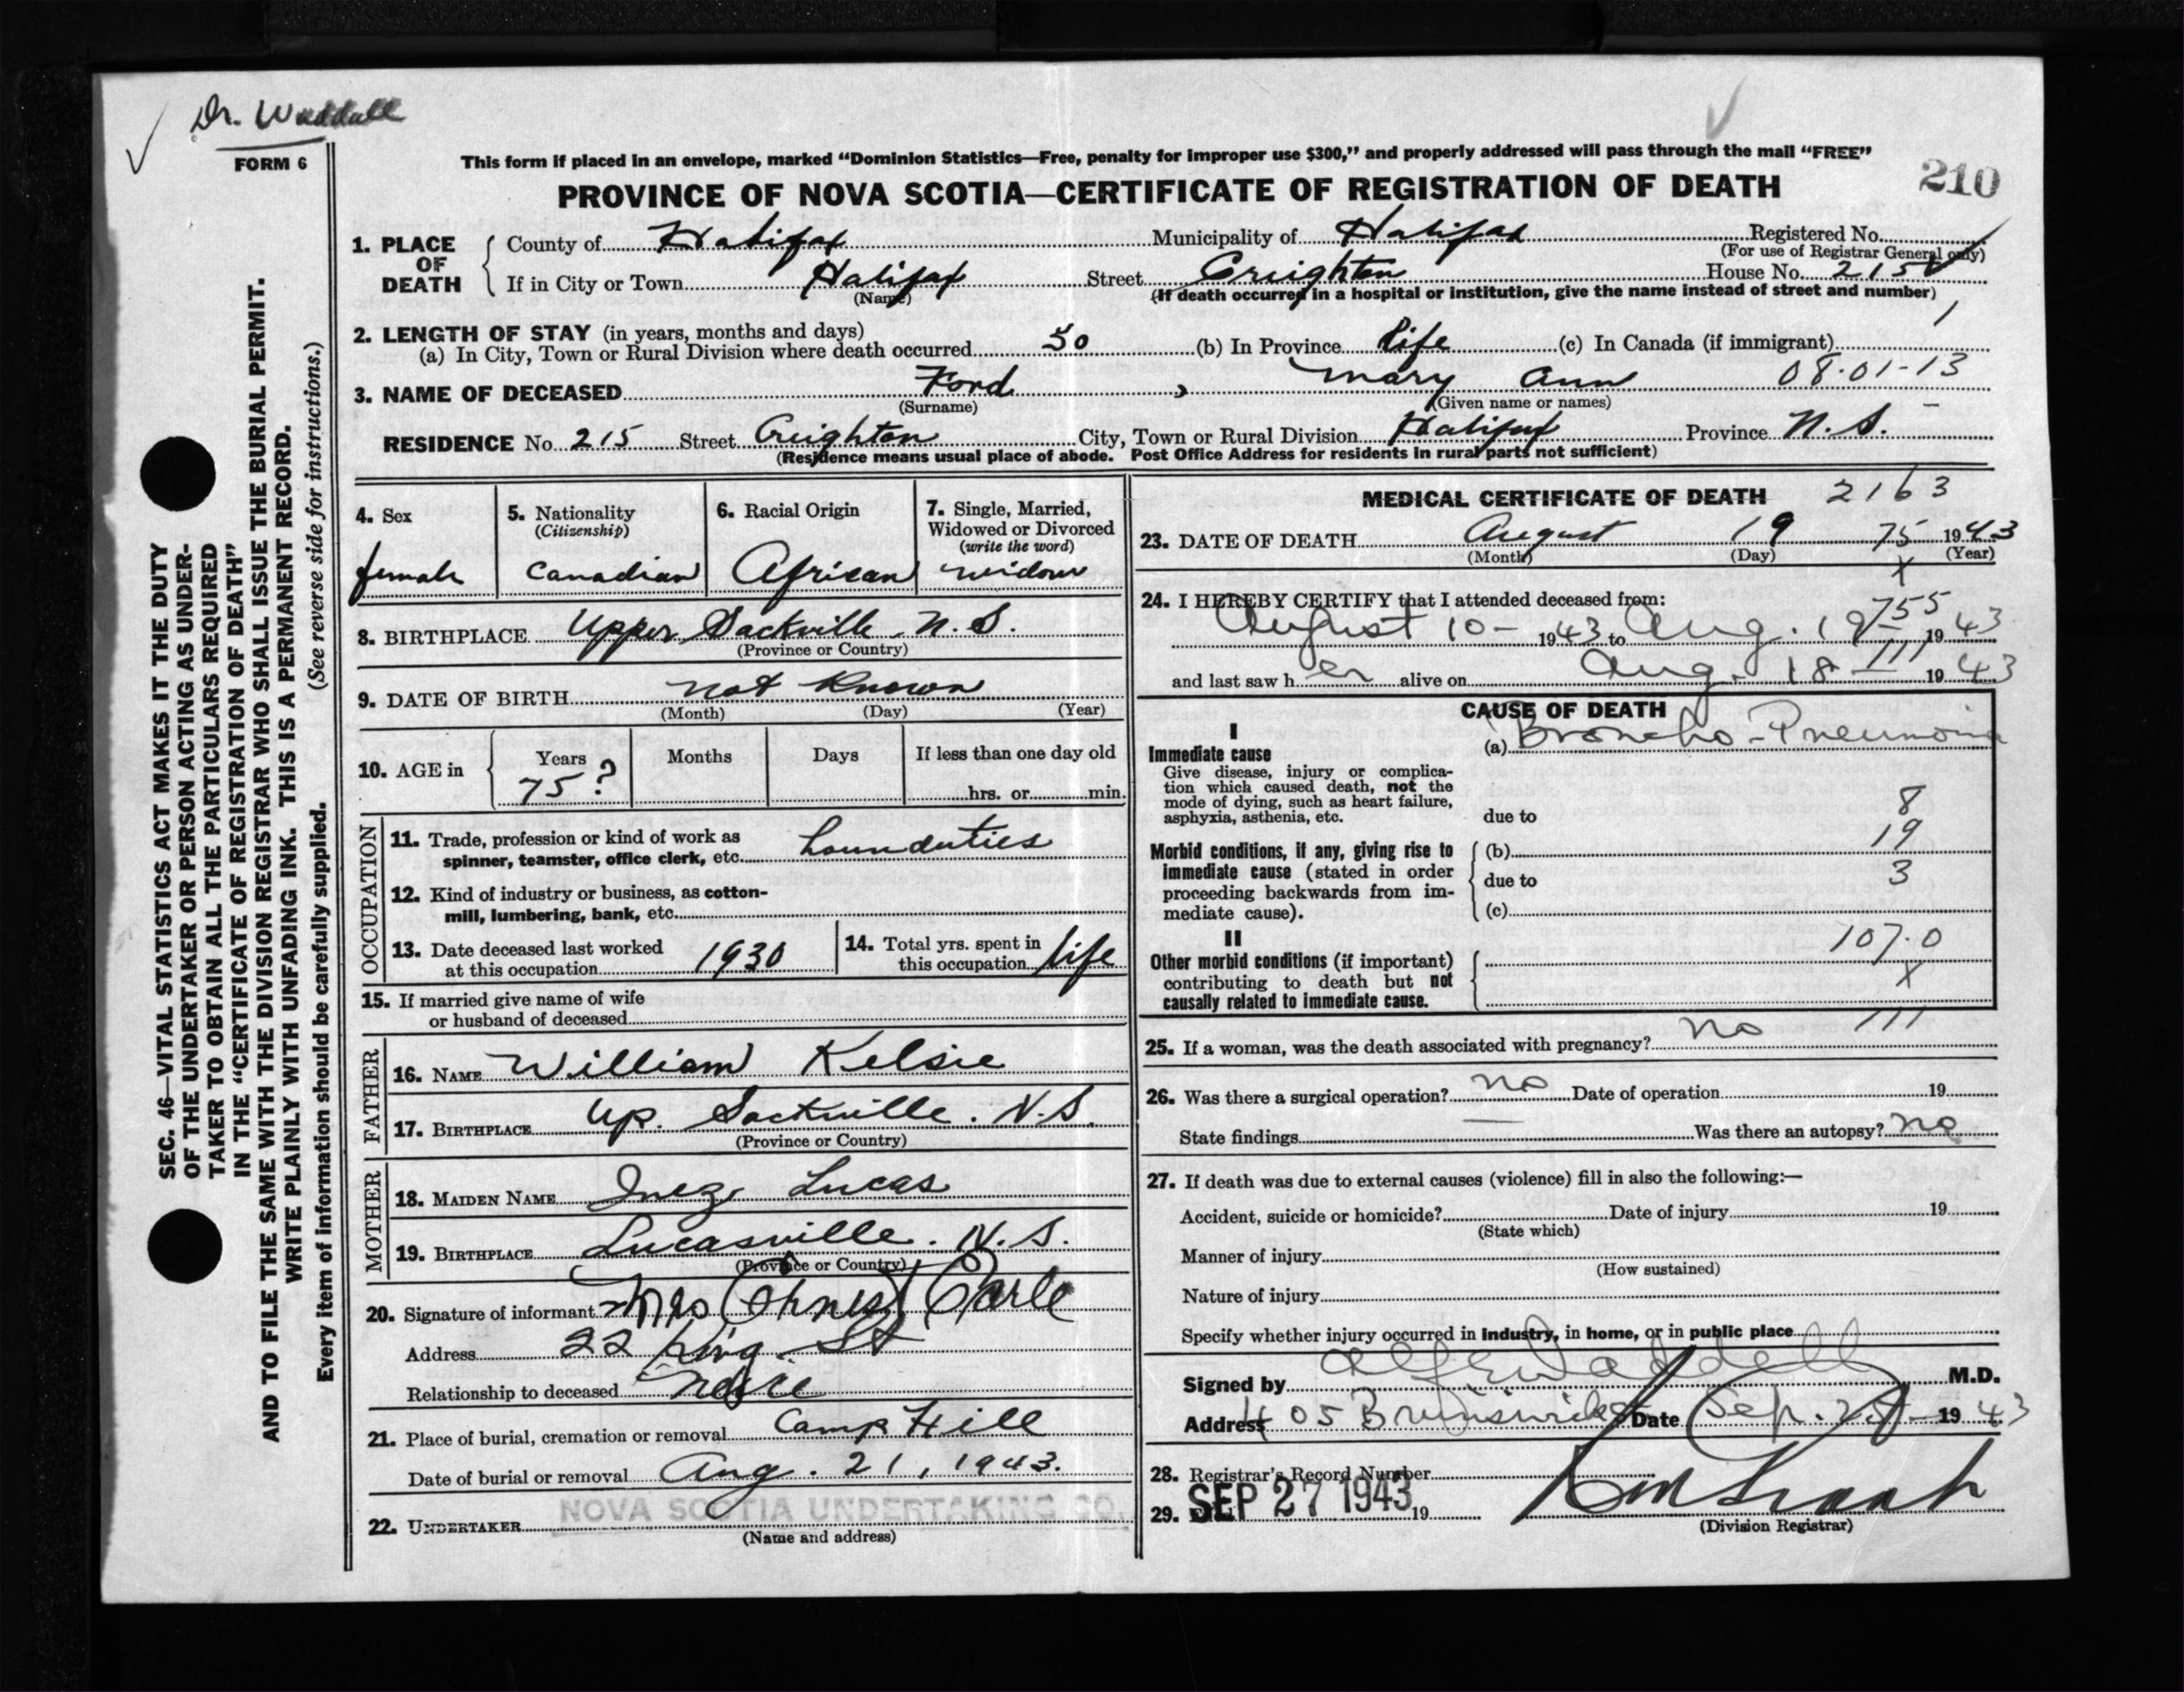 Dr. Waddell
FORM 6
This form if placed in an envelope, marked “Dominion Statistics—Free, penalty for improper use $300,” and properly addressed will pass through the mail “FREE”
PROVINCE OF NOVA SCOTIA—CERTIFICATE OF REGISTRATION OF DEATH
210
1. PLACE OF DEATH
County of Halifax Municipality of Halifax Registered No.
(For use of Registrar General only)
If in City or Town Halifax Street Creighton House No. 215
(Name) (If death occurred in a hospital or institution, give the name instead of street and number)
2. LENGTH OF STAY (in years, months and days)
(a) In City, Town or Rural Division where death occurred 50 (b) In Province life (c) In Canada (if immigrant)
08-01-13
3. NAME OF DECEASED Ford, Mary Ann
(Surname) (Given name or names)
RESIDENCE No. 215 Street Creighton City, Town or Rural Division Halifax Province N.S.
(Residence means usual place of abode. Post Office Address for residents in rural parts not sufficient)
4. Sex
female
5. Nationality
(Citizenship)
Canadian
6. Racial Origin
African
7. Single, Married,
Widowed or Divorced
(write the word)
widow
8. BIRTHPLACE Upper Sackville N.S.
(Province or Country)
9. DATE OF BIRTH not known
(Month) (Day) (Year)
10. AGE in
Years Months Days If less than one day old
75? hrs. or min.
OCCUPATION
11. Trade, profession or kind of work as
spinner, teamster, office clerk, etc.
12. Kind of industry or business, as cotton-
mill, lumbering, bank, etc.
13. Date deceased last worked
at this occupation 1930
14. Total yrs. spent in
this occupation life
15. If married give name of wife
or husband of deceased
FATHER
16. NAME William Kelsie
17. BIRTHPLACE Up. Sackville. N.S.
(Province or Country)
MOTHER
18. MAIDEN NAME Inez Lucas
19. BIRTHPLACE Lucasville. N.S.
(Province or Country)
20. Signature of informant Mrs
Address 22 King St
Relationship to deceased Neice
21. Place of burial, cremation or removal Camp Hill
Date of burial or removal Aug. 21, 1943.
22. UNDERTAKER NOVA SCOTIA UNDERTAKING CO.
(Name and address)
MEDICAL CERTIFICATE OF DEATH 2163
23. DATE OF DEATH August 19 75 1943
(Month) (Day) (Year)
X
24. I HEREBY CERTIFY that I attended deceased from:
755
August 10- 1943 to Aug. 19 1943
111
and last saw her alive on Aug. 18 1943
CAUSE OF DEATH
I
Immediate cause
(a) Broncho-Pneumonia
Give disease, injury or complica-
tion which caused death, not the
mode of dying, such as heart failure,
asphyxia, asthenia, etc.
due to 8
Morbid conditions, if any, giving rise to
immediate cause (stated in order
proceeding backwards from im-
mediate cause).
(b) 19
due to 3
(c)
II
Other morbid conditions (if important)
contributing to death but not
causally related to immediate cause.
107.0
X
111
25. If a woman, was the death associated with pregnancy? no
26. Was there a surgical operation? no Date of operation 19
State findings Was there an autopsy? no
27. If death was due to external causes (violence) fill in also the following:—
Accident, suicide or homicide? Date of injury 19
(State which)
Manner of injury
(How sustained)
Nature of injury
Specify whether injury occurred in industry, in home, or in public place
Signed by Waddell M.D.
Address 405 Brunswick Date Sep. 1943
28. Registrar's Record Number
29. SEP 27 1943 19
(Division Registrar)
SEC. 46—VITAL STATISTICS ACT MAKES IT THE DUTY
OF THE UNDERTAKER OR PERSON ACTING AS UNDER-
TAKER TO OBTAIN ALL THE PARTICULARS REQUIRED
IN THE “CERTIFICATE OF REGISTRATION OF DEATH”
AND TO FILE THE SAME WITH THE DIVISION REGISTRAR WHO SHALL ISSUE THE BURIAL PERMIT.
WRITE PLAINLY WITH UNFADING INK. THIS IS A PERMANENT RECORD.
Every item of information should be carefully supplied. (See reverse side for instructions.)